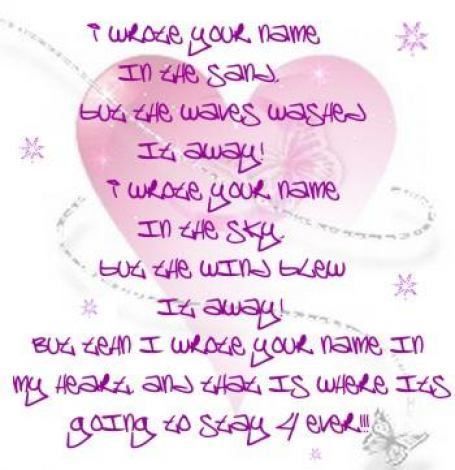 I wrote your name
In the sand.
but the waves washed
It away!
I wrote your name
In the sky.
but the wind blew
It away!
But tehn I wrote your name in
my heart. and that is where its
going to stay 4 ever!!!